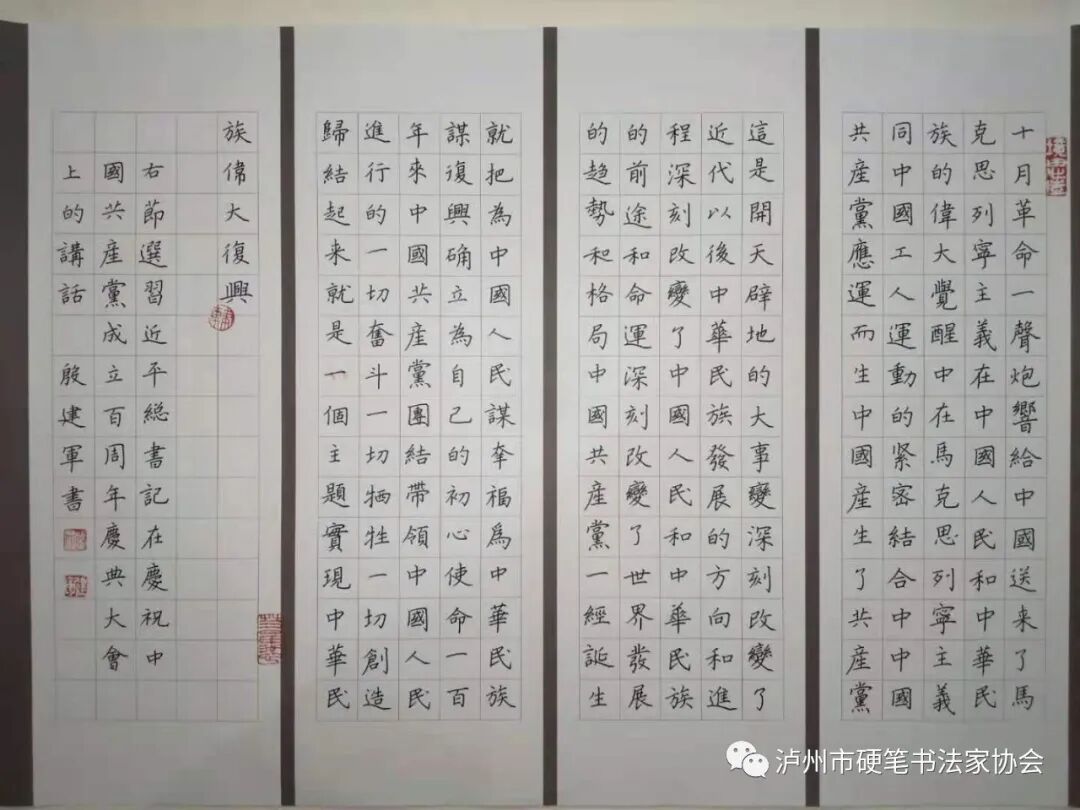 十月革命一聲炮響給中國送来了馬
克思列寧主義在中國人民和中華民
族的偉大覺醒中在馬克思列寧主義
同中國工人運動的紧密結合中中國
共産黨應運而生中國産生了共産黨
這是開天辟地的大事變深刻改變了
近代以後中華民族發展的方向和進
程深刻改變了中國人民和中華民族
的前途和命運深刻改變了世界發展
的趋勢和格局中國共産黨一經誕生
就把為中國人民謀幸福爲中華民族
謀復興确立為自己的初心使命一百
年來中國共産黨團結帶領中國人民
進行的一切奮斗一切牺牲一切創造
歸結起来就是一個主題實現中華民
族偉大復興
右節選習近平総書記在慶祝中
國共産黨成立百周年慶典大會
上的講話 殷建軍書
泸州市硬笔书法家协会